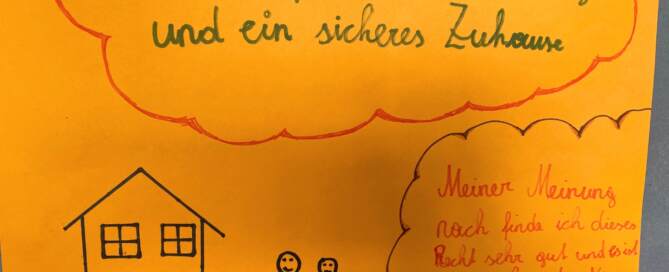 und ein sicheres Zuhause
Meiner Meinung
nach finde ich dieses
Recht sehr gut und es ist